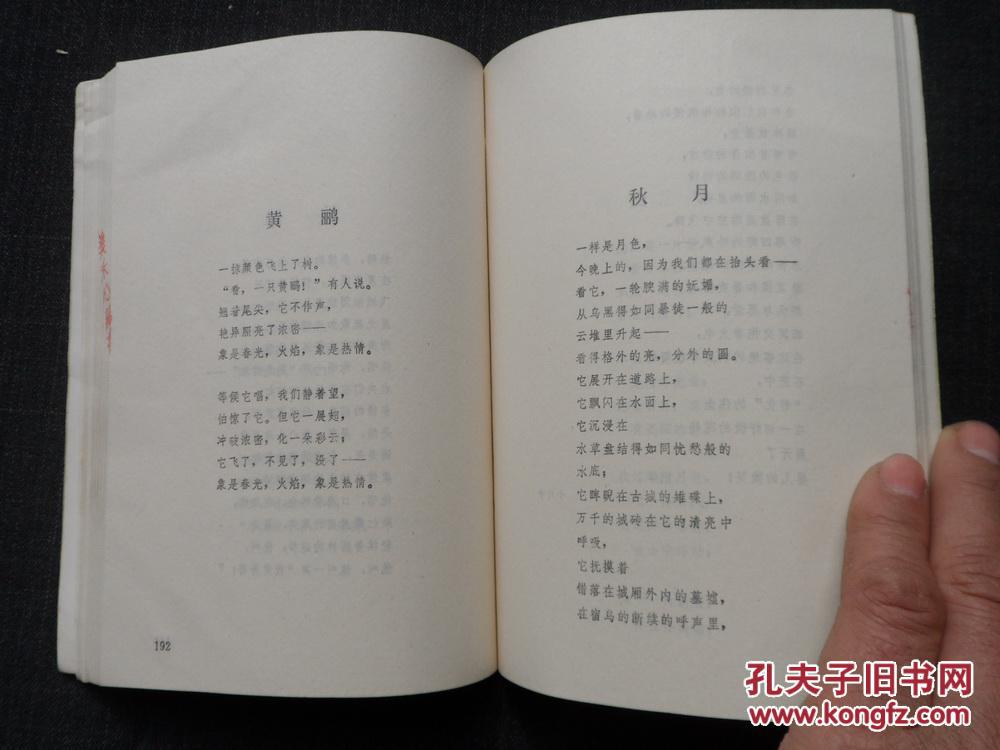 黄鹂
一掠颜色飞上了树。
“看，一只黄鹂！”有人说。
翘着尾尖，它不作声，
艳异照亮了浓密——
象是春光，火焰，象是热情。
等侯它唱，我们静着望，
怕惊了它。但它一展翅，
冲破浓密，化一朵彩云；
它飞了，不见了，没了——
象是春光，火焰，象是热情。
192
秋月
一样是月色，
今晚上的，因为我们都在抬头看——
看它，一轮腴满的妩媚，
从乌黑得如同暴徒一般的
云堆里升起——
看得格外的亮，分外的圆。
它展开在道路上，
它飘闪在水面上，
它沉浸在
水草盘结得如同忧愁般的
水底；
它睥睨在古城的雉碟上，
万千的城砖在它的清亮中
呼吸，
它抚摸着
错落在城厢外内的墓墟，
在宿鸟的断续的呼声里，
孔夫子旧书网
www.kongfz.com